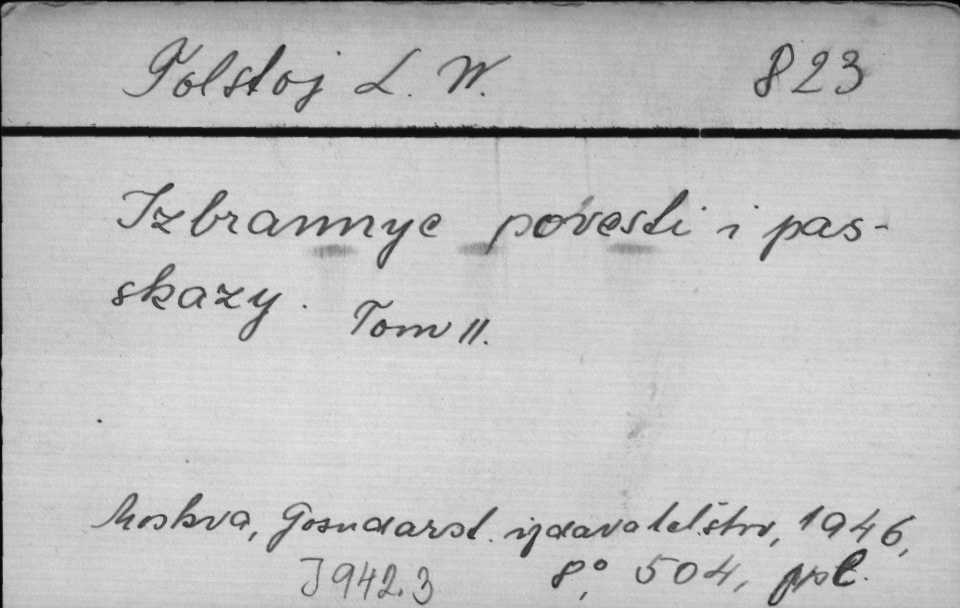 Tolstoj L. W. 823
Izbrannye povesti i pas-
skazy. Tom II.
Moskva, Gosudarst. izdavatelstvo, 1946,
J942.3 8°, 504, ppl.